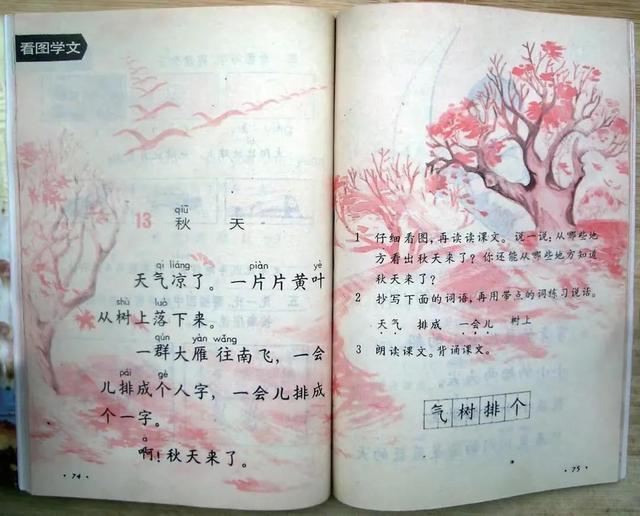 看图学文
qiū
13 秋 天
qì liáng piàn yè
天气凉了。一片片黄叶
shù luò
从树上落下来。
qún yàn wǎng
一群大雁往南飞，一会
pái gè
儿排成个人字，一会儿排成
个一字。
ā
啊！秋天来了。
·74·
1 仔细看图，再读读课文。说一说：从哪些地
方看出秋天来了？你还能从哪些地方知道
秋天来了？
2 抄写下面的词语，再用带点的词练习说话。
天气 排成 一会儿 树上
3 朗读课文。背诵课文。
气树排个
·75·